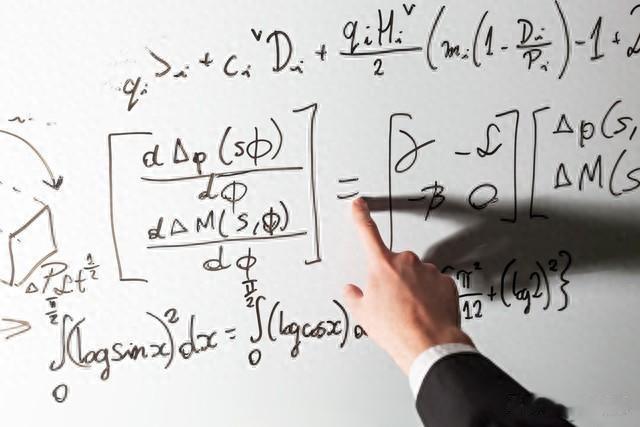 q_i >_i + c_i^v D_i + q_i H_i^v / 2 (m_i (1 - D_i / P_i) - 1 + 2
[ d Δp (sϕ) / dϕ
d ΔM (s,ϕ) / dϕ ] = [ γ -L
-β 0 ] [ Δp (s,
ΔM (s
Δ P L t^{1/2}
⇒ ∫_0^{π/2} (log sin x)^2 dx = ∫_0^{π/2} (log cos x) d π^2 / 12 + (lg 2)^2 }